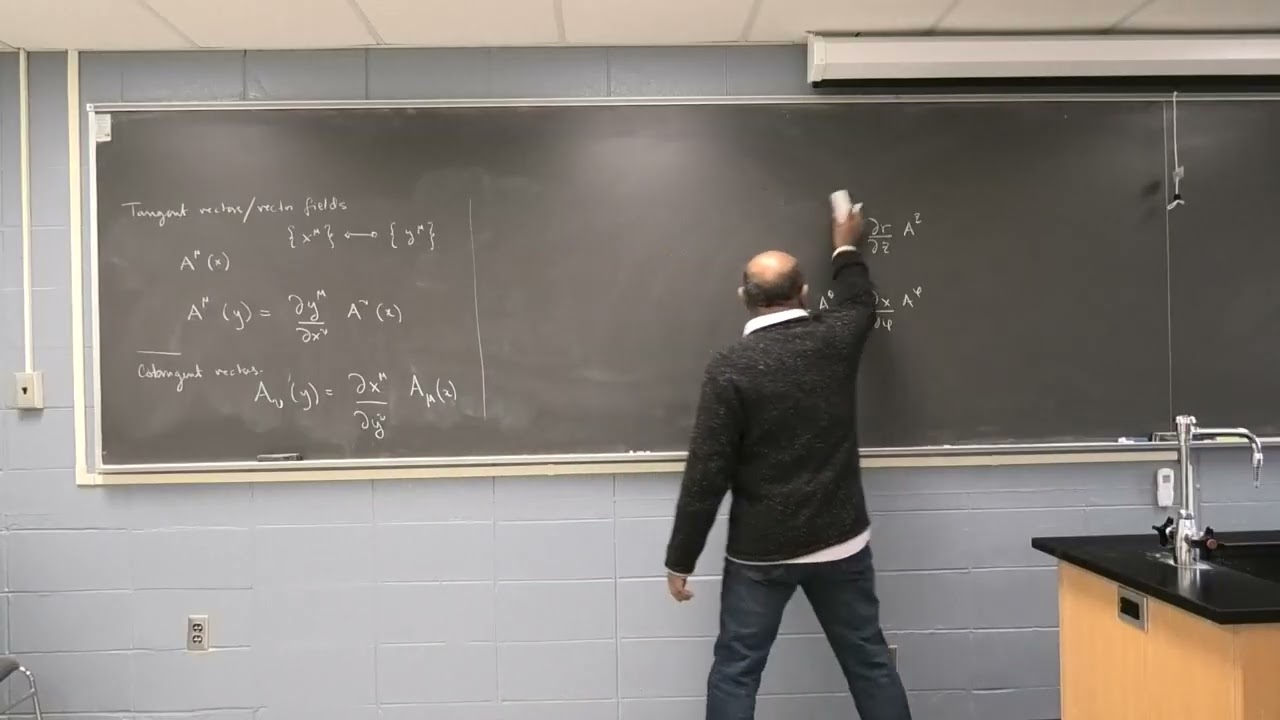 Tangent vectors/vector fields
{x^μ} ⟷ {y^μ}
A^μ(x)
A^μ(y) = ∂y^μ/∂x^ν A^ν(x)
Cotangent vectors.
A_ν'(y) = ∂x^μ/∂y^ν A_μ(x)
∂r/∂z A^z
A^θ ∂x/∂φ A^φ